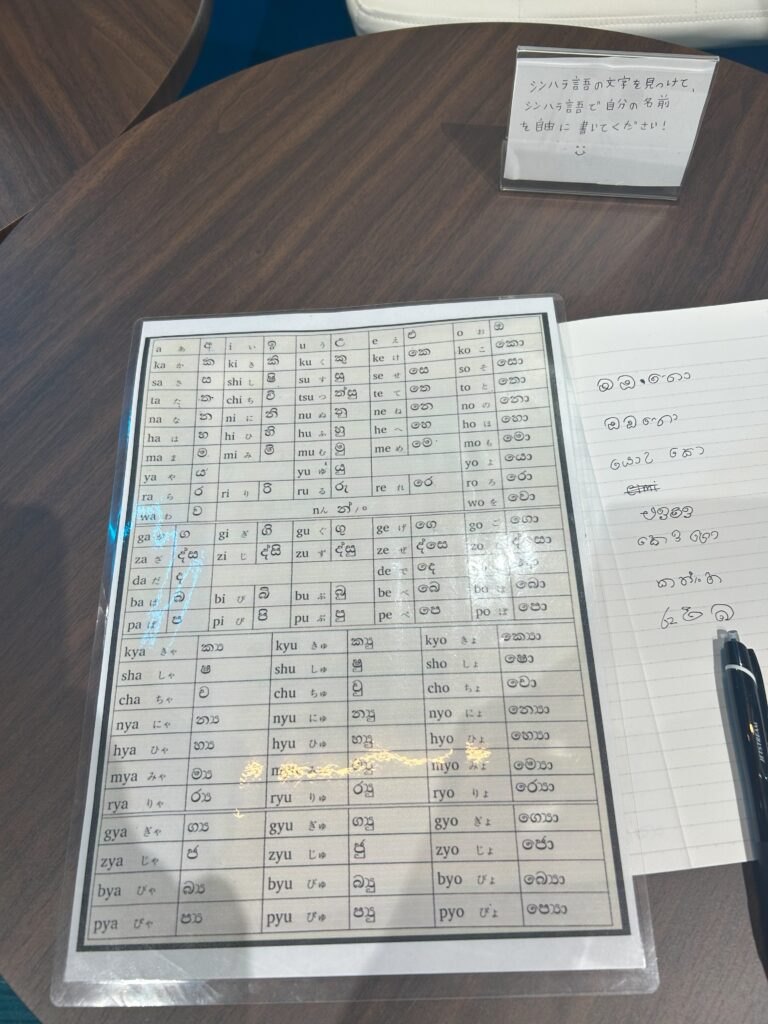 シンハラ語の文字を見つけて、
シンハラ語で自分の名前
を自由に書いてください!
a あ අ i い ඉ u う උ e え එ o お ඔ
ka か ක ki き කි ku く කු ke け කෙ ko こ කො
sa さ ස shi し ෂි su す සු se せ සෙ so そ සො
ta た ත chi ち චි tsu つ ත්සු te て තෙ to と තො
na な න ni に නි nu ぬ නු ne ね නෙ no の නො
ha は හ hi ひ හි hu ふ හු he へ හෙ ho ほ හො
ma ま ම mi み මි mu む මු me め මෙ mo も මො
ya や ය yu ゆ යු yo よ යො
ra ら ර ri り රි ru る රු re れ රෙ ro ろ රො
wa わ ව n ん න්/ං wo を වො
ga ග gi ぎ ගි gu ぐ ගු ge げ ගෙ go ご ගො
za ざ ද්ස zi じ ද්සි zu ず ද්සු ze ぜ ද්සෙ zo ද්සො
da だ ද de දෙ
ba ば බ bi び බි bu ぶ බු be べ බෙ bo ぼ බො
pa ぱ ප pi ぴ පි pu ぷ පු pe ぺ පෙ po ぽ පො
kya きゃ ක්‍ය kyu きゅ ක්‍යු kyo きょ ක්‍යො
sha しゃ ෂ shu しゅ ෂු sho しょ ෂො
cha ちゃ ච chu ちゅ චු cho ちょ චො
nya にゃ න්‍ය nyu にゅ න්‍යු nyo にょ න්‍යො
hya ひゃ හ්‍ය hyu ひゅ හ්‍යු hyo ひょ හ්‍යො
mya みゃ ම්‍ය myo みょ ම්‍යො
rya りゃ ර්‍ය ryu りゅ ර්‍යු ryo りょ ර්‍යො
gya ぎゃ ග්‍ය gyu ぎゅ ග්‍යු gyo ぎょ ග්‍යො
zya じゃ ජ zyu じゅ ජු zyo じょ ජො
bya びゃ බ්‍ය byu びゅ බ්‍යු byo びょ බ්‍යො
pya ぴゃ ප්‍ය pyu ぴゅ ප්‍යු pyo ぴょ ප්‍යො
JETSTREAM